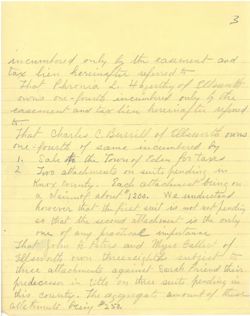 3
incumbered only by the easement and
tax lien hereinafter referred to
That Phronia L. Hagerthy of Ellsworth
owns one-fourth incumbered only by the
easement and tax lien hereinafter referred
to.
That Charles C. Burrill of Ellsworth owns
one-fourth of same incumbered by
1. Sale to the Town of Eden for taxes
2. Two attachments on suits pending in
Knox County. Each attachment being on
a writ of about $1200. We understand
however that the first suit is not pending
so that the second attachment is the only
one of any practical importance
That John A. Peters and Myer Gallert of
Ellsworth own three eighths subject to
three attachments against Sarah Friend their
predecessor in title on three suits pending in
this county. The aggregate amount of these
attachments being